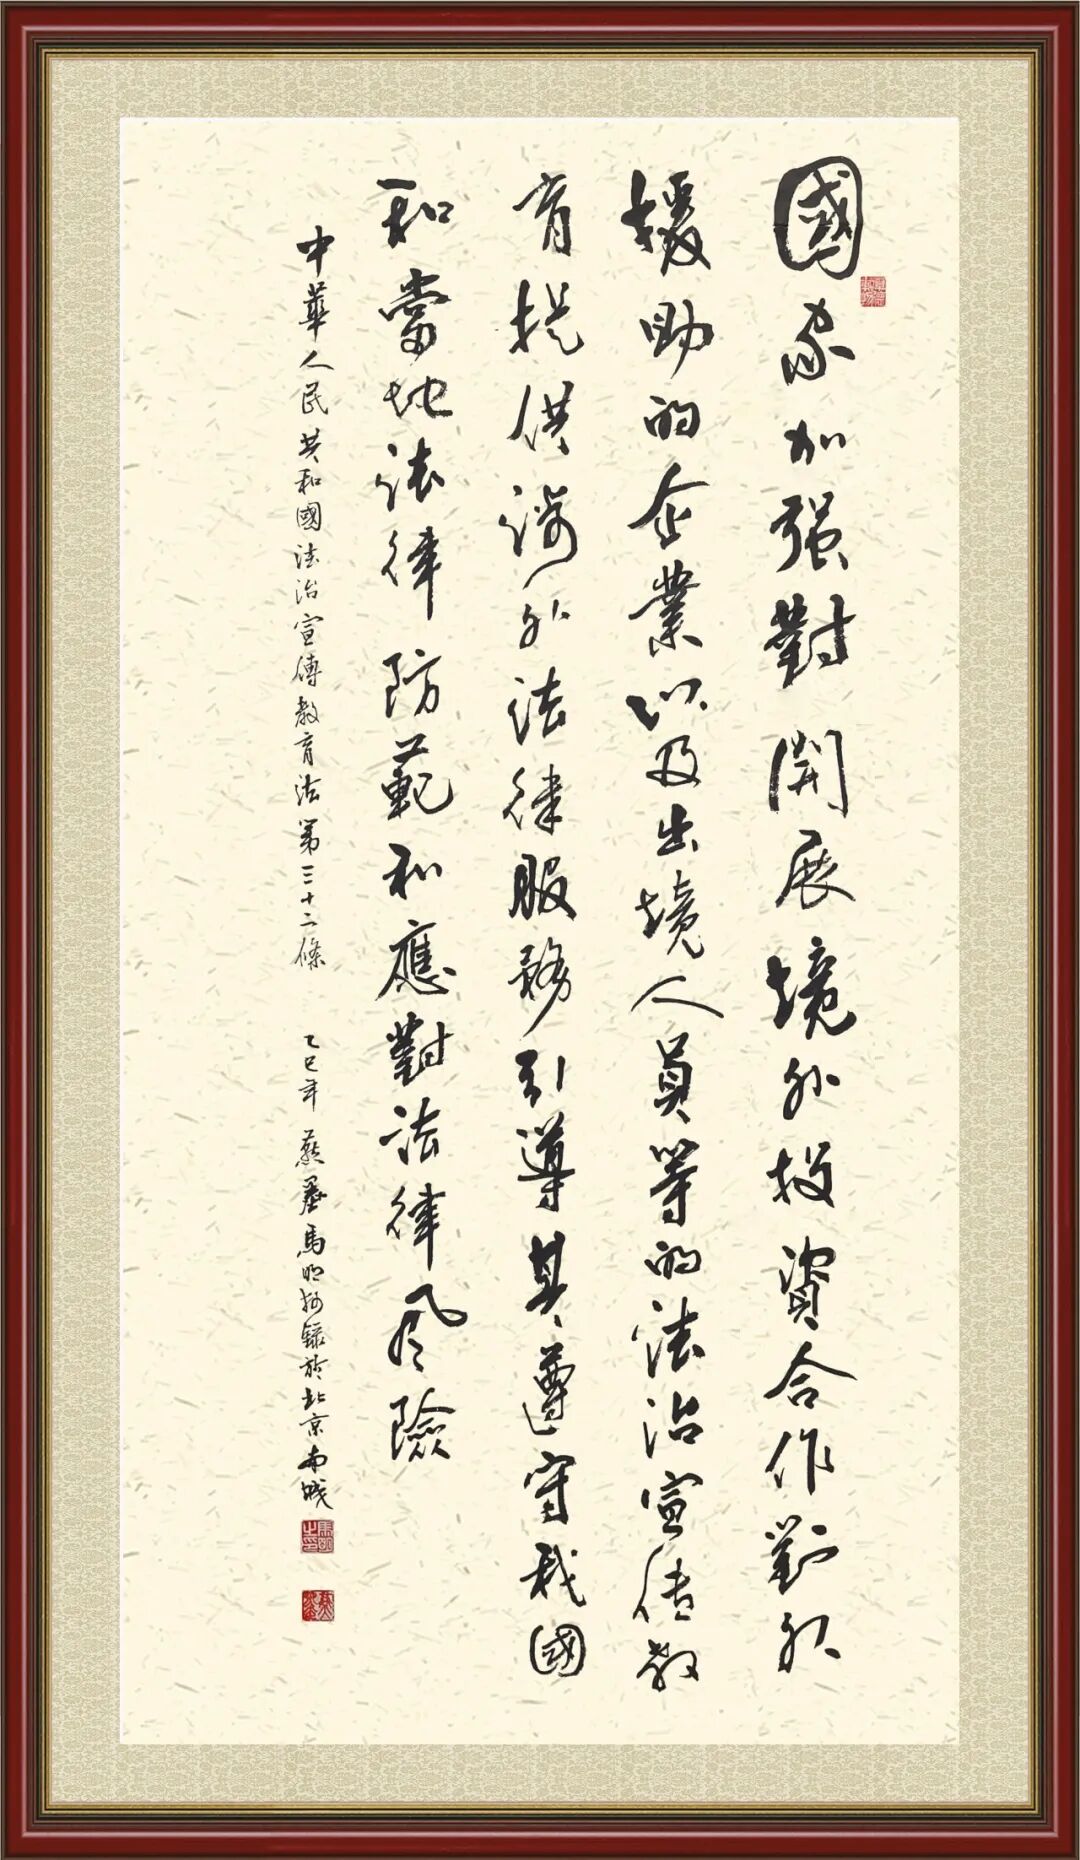 國家加强對開展境外投資合作對外
援助的企業以及出境人員等的法治宣傳教
育提供涉外法律服務引導其遵守我國
和當地法律防範和應對法律風險
中華人民共和國法治宣傳教育法第三十二條 乙巳年 燕墨馬明 録於北京南城